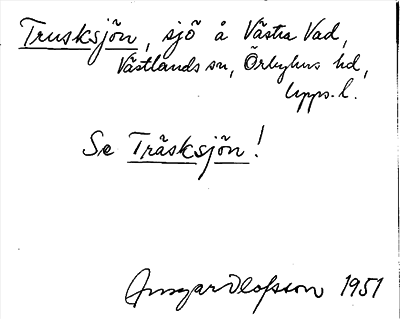 Trusksjön, sjö å Västra Vad,
Västlands sn, Örbyhus hd,
Upps. l.
Se Träsksjön!
Ansgar Olofsson 1951